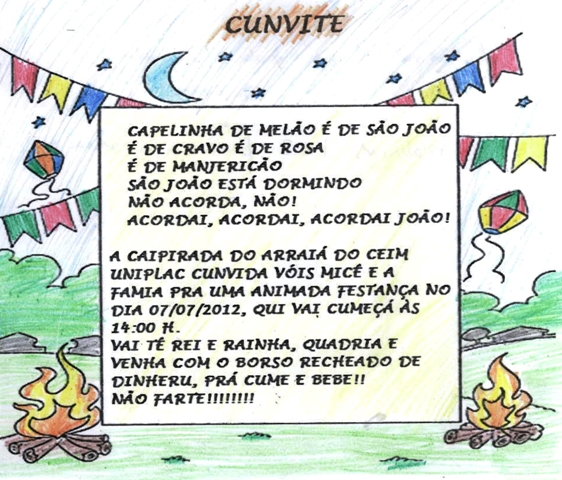 CUNVITE
CAPELINHA DE MELÃO É DE SÃO JOÃO
É DE CRAVO É DE ROSA
É DE MANJERICÃO
SÃO JOÃO ESTÁ DORMINDO
NÃO ACORDA, NÃO!
ACORDAI, ACORDAI, ACORDAI JOÃO!
A CAIPIRADA DO ARRAIÁ DO CEIM
UNIPLAC CUNVIDA VÓIS MICÊ E A
FAMIA PRA UMA ANIMADA FESTANÇA NO
DIA 07/07/2012, QUI VAI CUMEÇÁ ÀS
14:00 H.
VAI TÊ REI E RAINHA, QUADRIA E
VENHA COM O BORSO RECHEADO DE
DINHERU, PRÁ CUME E BEBE!!
NÃO FARTE!!!!!!!!